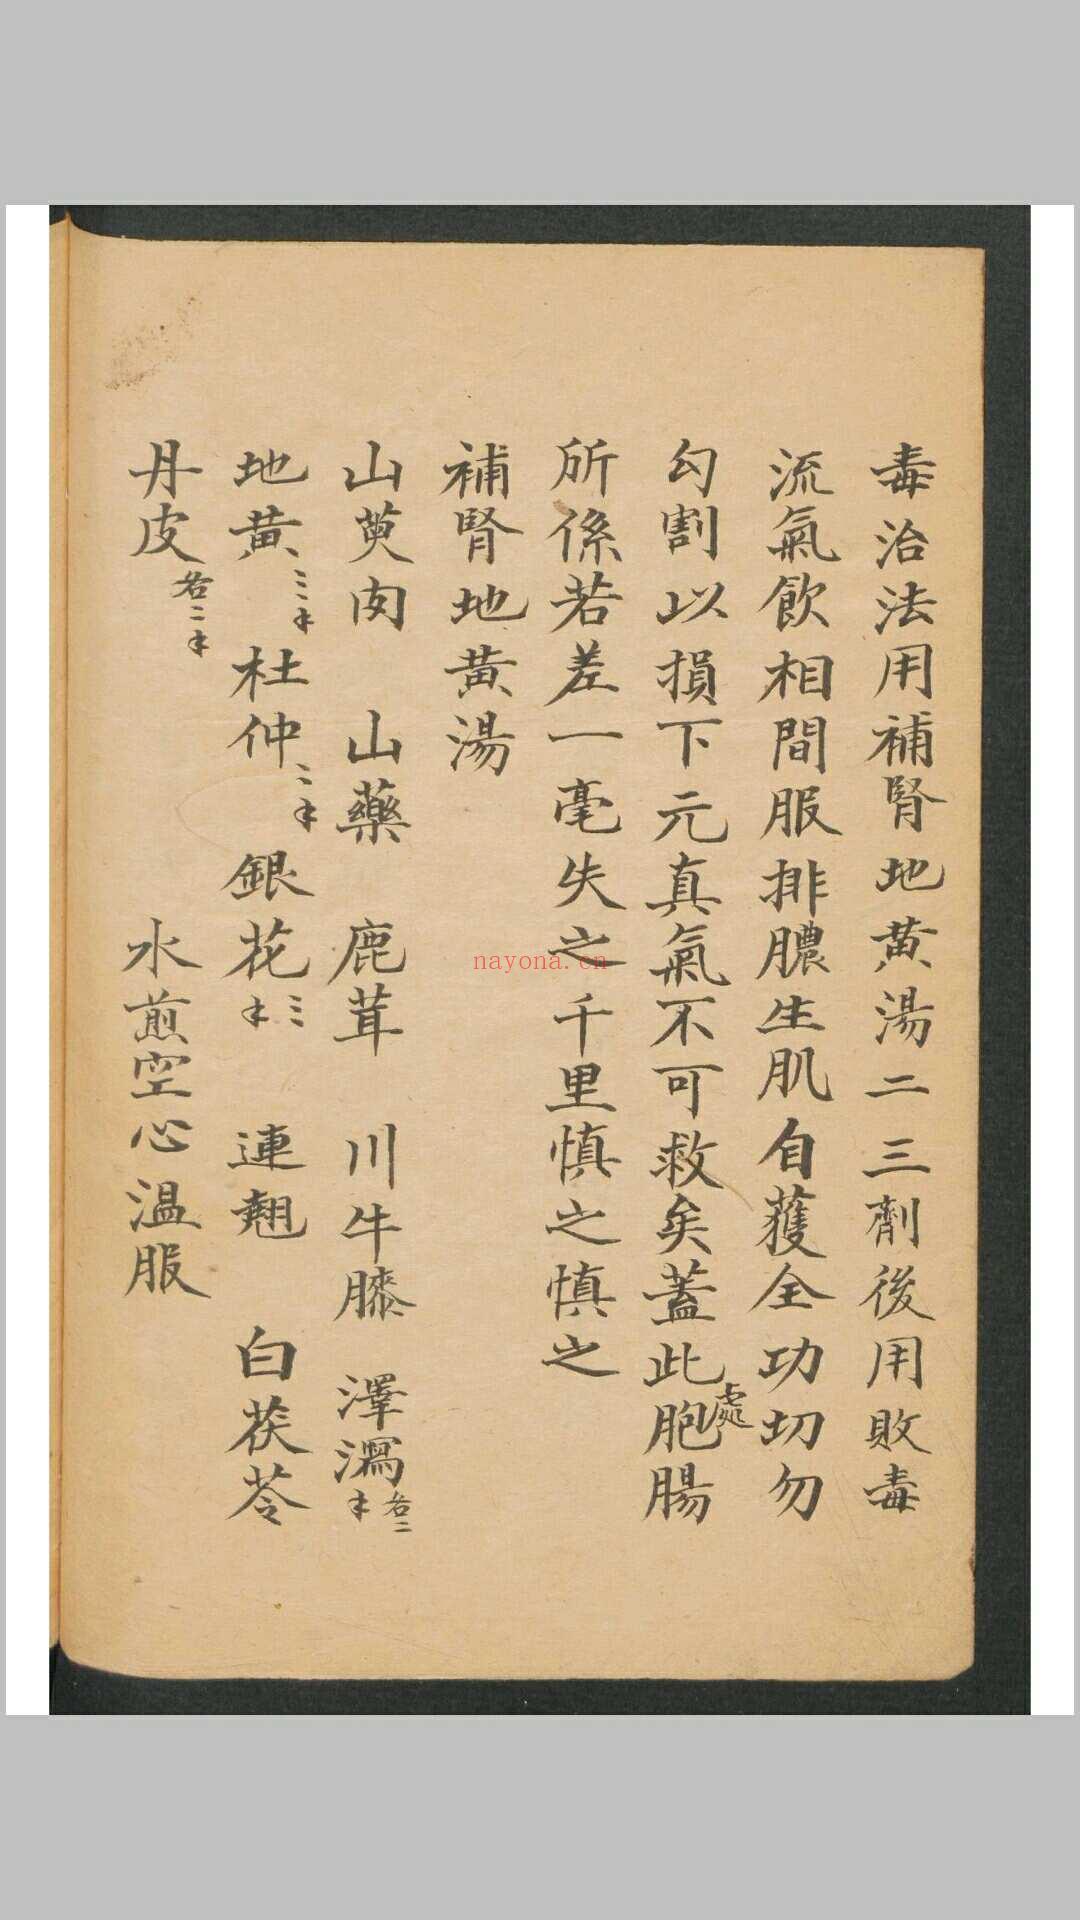 毒治法用補腎地黄湯二三劑後用敗毒
流氣飲相間服排膿生肌自獲全功切勿
勾割以損下元真氣不可救矣蓋此處胞腸
所係若差一毫失之千里慎之慎之
補腎地黄湯
山萸肉 山藥 鹿茸 川牛膝 澤瀉各二𠂆
地黄三𠂆 杜仲二𠂆 銀花三𠂆 連翹 白茯苓
丹皮各二𠂆 水煎空心温服
nayona.cn